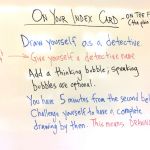 On Your Index Card - ON THE F
Draw yourself as a detective
Give yourself a detective name
Add a thinking bubble; speaking
bubbles are optional.
You have 5 minutes from the second bell
Challenge yourself to have a complete
drawing by then. This means,